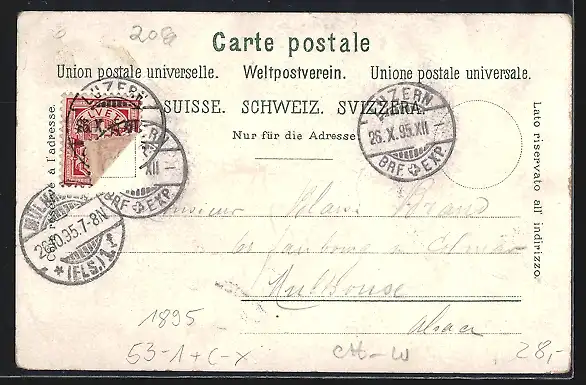 20%
Carte postale
Union postale universelle. Weltpostverein. Unione postale universale.
SUISSE. SCHWEIZ. SVIZZERA.
Nur für die Adresse
Côté réservé à l'adresse.
Lato riservato all' indirizzo.
LUZERN
HELVETIA
LUZERN
XII
BRF. EXP
LUZERN
26.X.95.XII
BRF. EXP
26.10.95.7-8N
*(ELS.)1.*
Monsieur
Mulhouse
Alsace
1895
53-1+C-X
CH-W
28,-